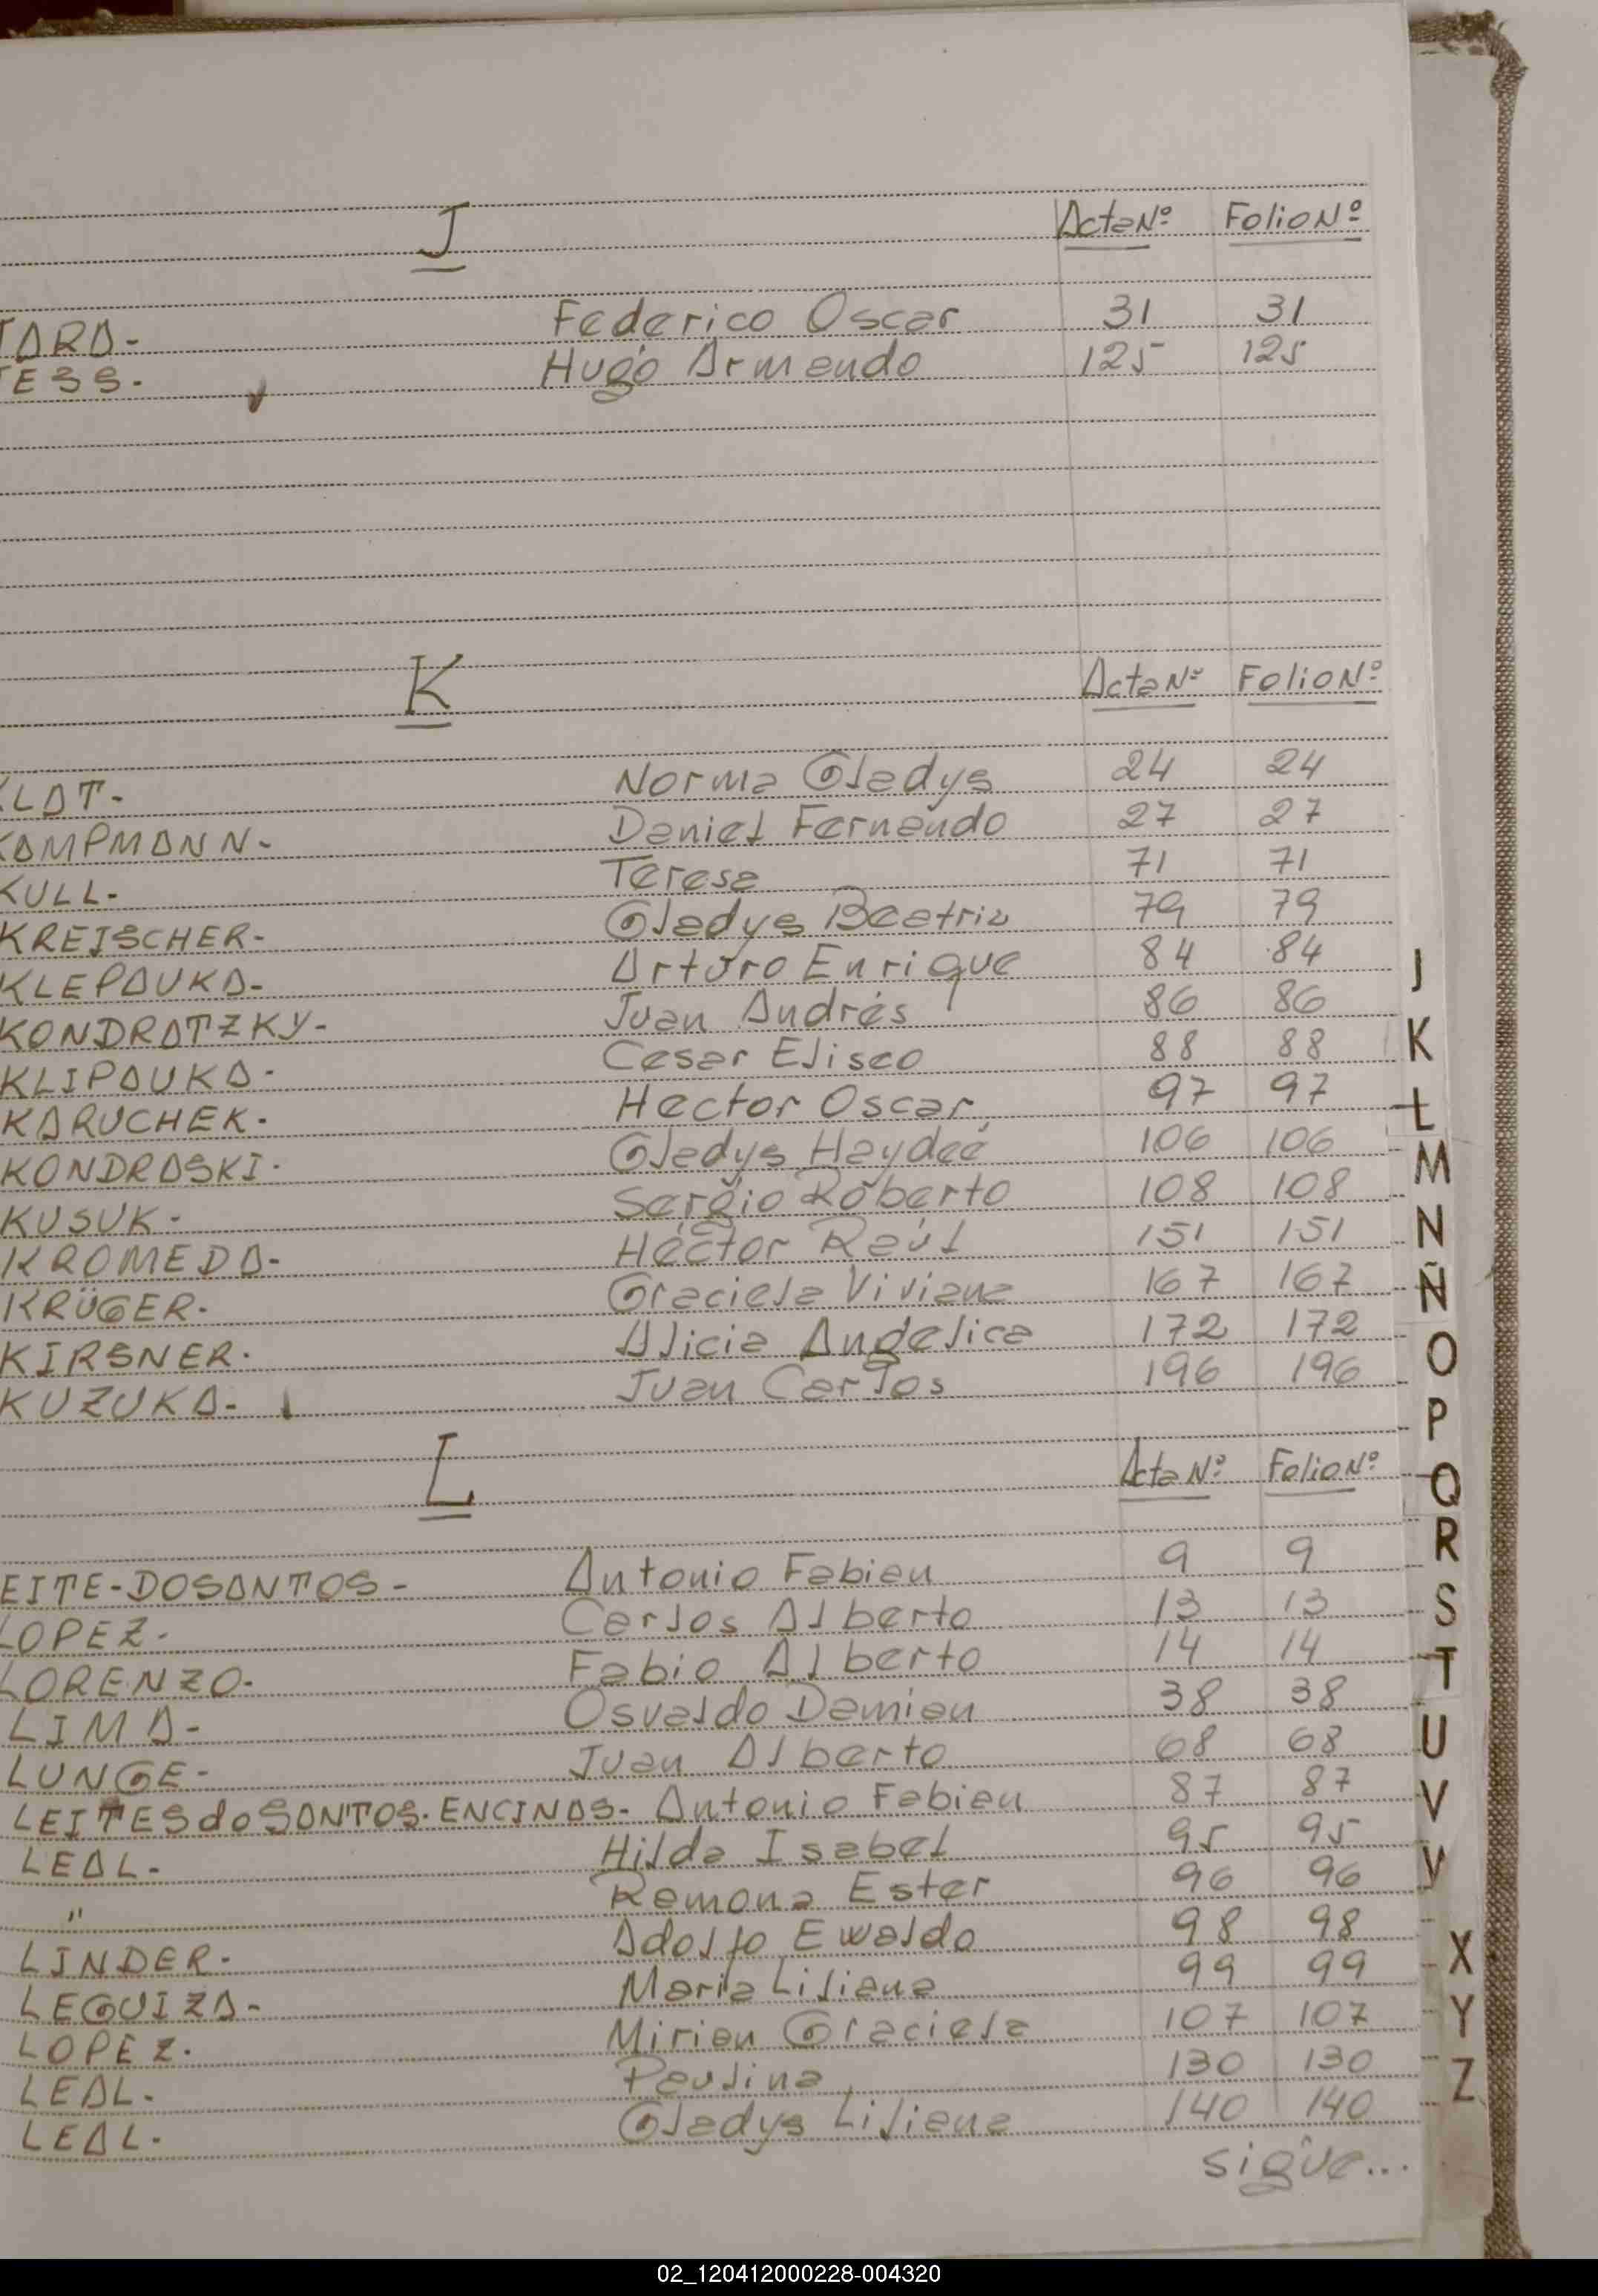 J Acta Nº Folio Nº
JARA- Federico Oscar 31 31
JESS. Hugo Armando 125 125
K Acta Nº Folio Nº
KLAT- Norma Gladys 24 24
KAMPMANN- Daniel Fernando 27 27
KULL- Teresa 71 71
KREISCHER- Gladys Beatriz 79 79
KLEPAUKA- Arturo Enrique 84 84
KONDRATZKY- Juan Andrés 86 86
KLIPAUKA- Cesar Eliseo 88 88
KARUCHEK. Hector Oscar 97 97
KONDRASKI. Gladys Haydeé 106 106
KUSUK- Sergio Roberto 108 108
KROMEDA- Héctor Raúl 151 151
KRÜGER. Graciela Viviana 167 167
KIRSNER. Alicia Angelica 172 172
KUZUKA- Juan Carlos 196 196
L Acta Nº Folio Nº
EITE-DOSANTOS- Antonio Fabian 9 9
LOPEZ- Carlos Alberto 13 13
LORENZO- Fabio Alberto 14 14
LIMA- Osvaldo Damian 38 38
LUNGE- Juan Alberto 68 68
LEITES do SANTOS. ENCINAS- Antonio Fabian 87 87
LEAL- Hilda Isabel 95 95
" Ramona Ester 96 96
LINDER- Adolfo Ewaldo 98 98
LEGUIZA- María Liliana 99 99
LOPEZ. Mirian Graciela 107 107
LEAL. Paulina 130 130
LEAL. Gladys Liliana 140 140
sigue...
J
K
L
M
N
Ñ
O
P
Q
R
S
T
U
V
V
X
Y
Z
02_120412000228-004320